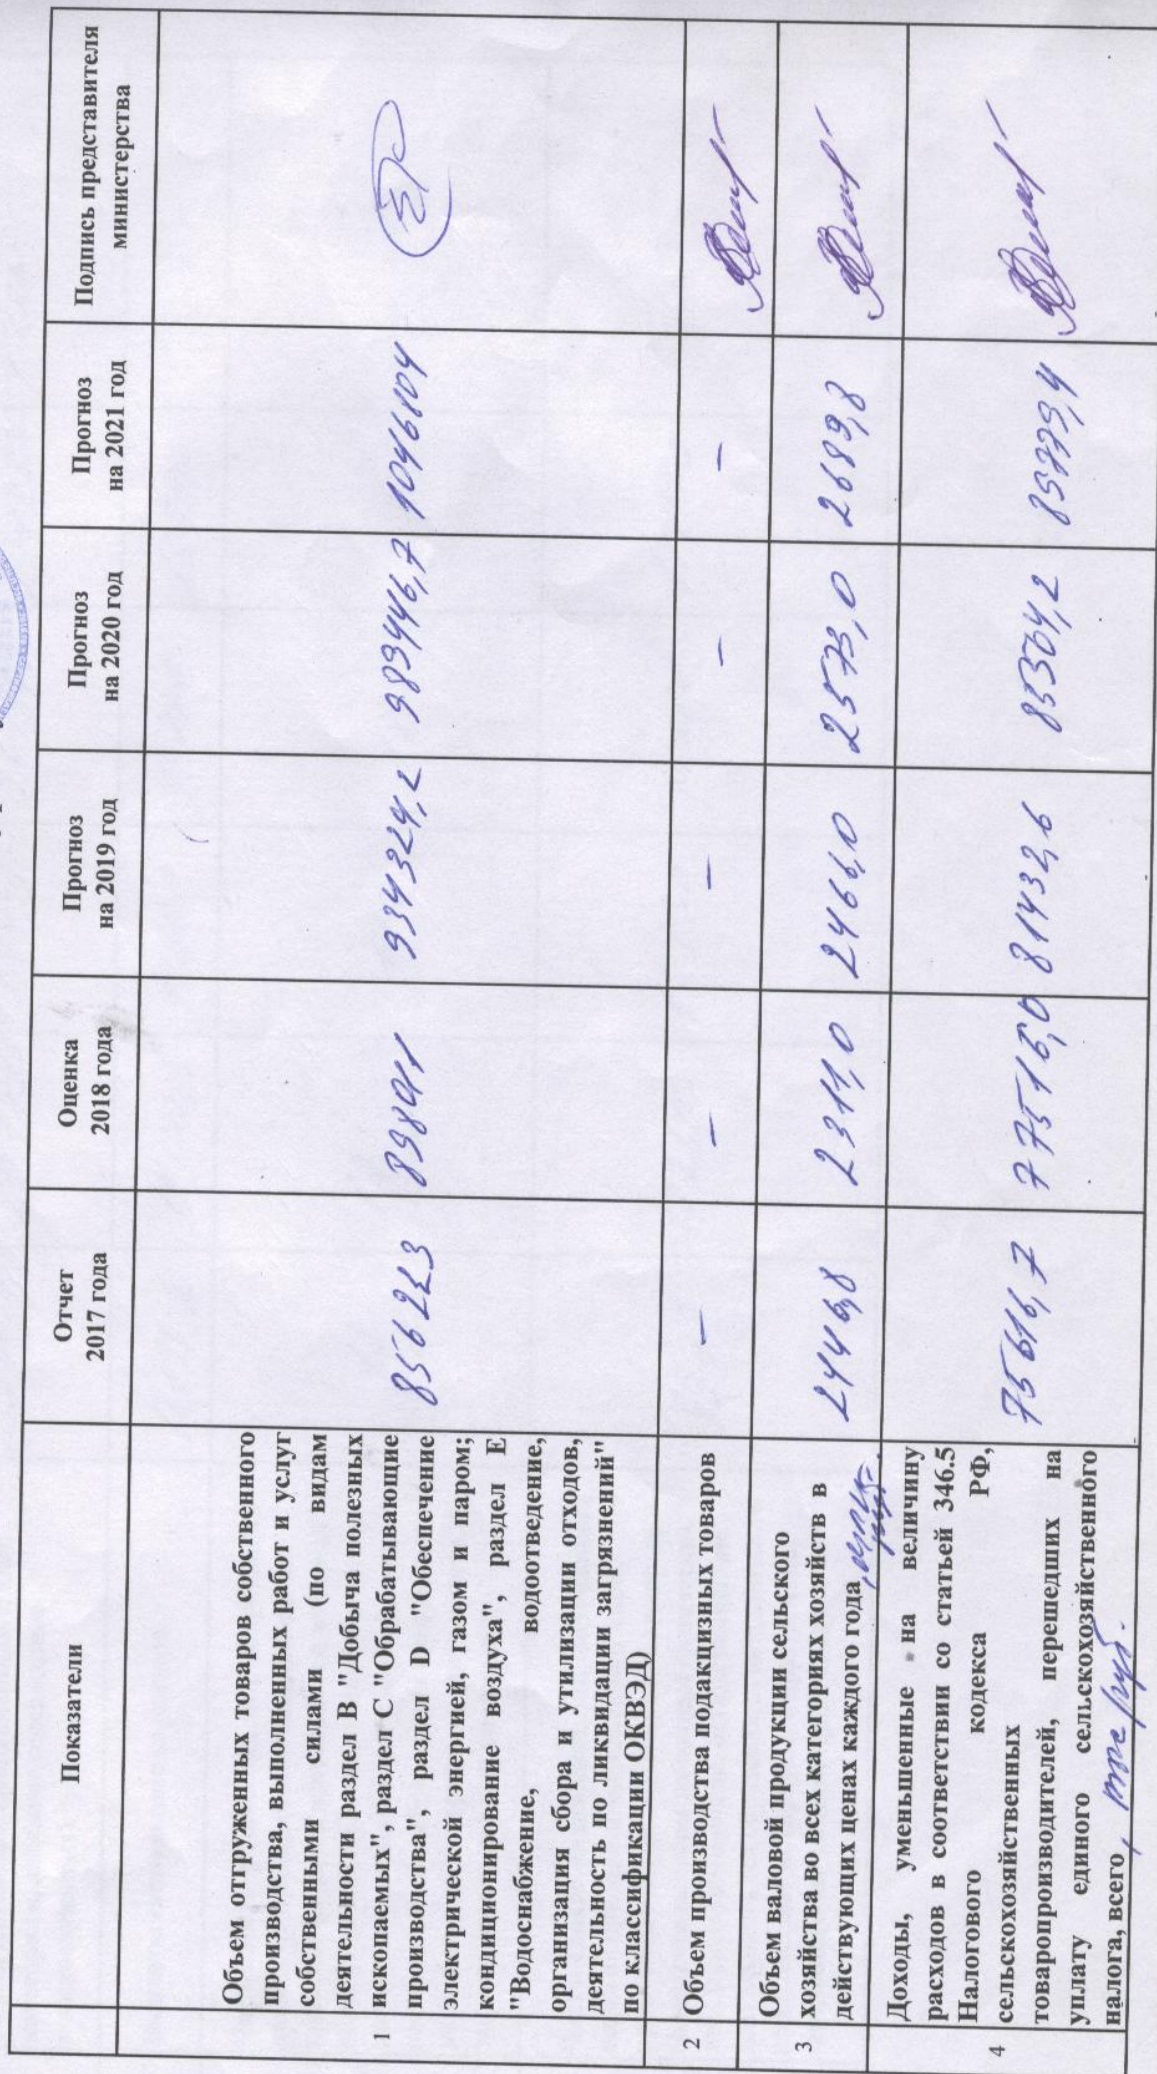 Показатели
Отчет
2017 года
Оценка
2018 года
Прогноз
на 2019 год
Прогноз
на 2020 год
Прогноз
на 2021 год
Подпись представителя
министерства
1
Объем отгруженных товаров собственного
производства, выполненных работ и услуг
собственными силами (по видам
деятельности раздел B "Добыча полезных
ископаемых", раздел C "Обрабатывающие
производства", раздел D "Обеспечение
электрической энергией, газом и паром;
кондиционирование воздуха", раздел E
"Водоснабжение, водоотведение,
организация сбора и утилизации отходов,
деятельность по ликвидации загрязнений"
по классификации ОКВЭД)
856223
898011
934324,2
989446,7
1046104
2
Объем производства подакцизных товаров
–
–
–
–
–
3
Объем валовой продукции сельского
хозяйства во всех категориях хозяйств в
действующих ценах каждого года
2446,8
2311,0
2466,0
2573,0
2689,8
4
Доходы, уменьшенные на величину
расходов в соответствии со статьей 346.5
Налогового кодекса РФ,
сельскохозяйственных
товаропроизводителей, перешедших на
уплату единого сельскохозяйственного
налога, всего, тыс руб.
75616,7
77515,0
81432,6
85504,2
89779,4